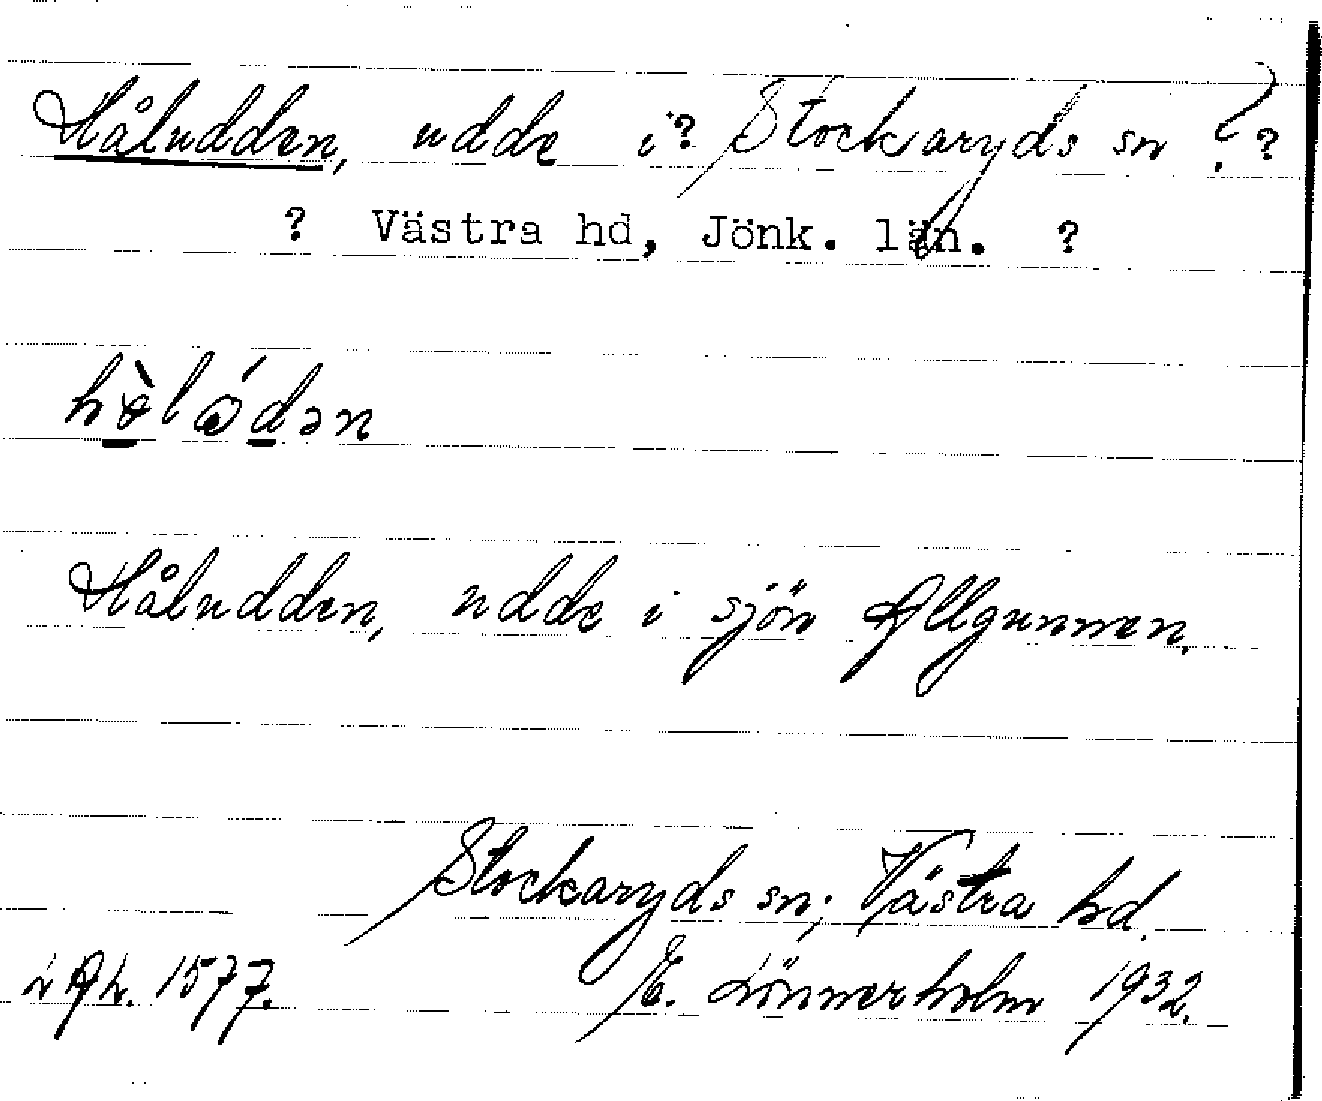 Håludden, udde i ? Stockaryds sn ? ?
? Västra hd, Jönk. län. ?
Håludden, udde i sjön Allgunnen.
Stockaryds sn; Västra hd.
LAL. 1577. E. Lönnerholm 1932.